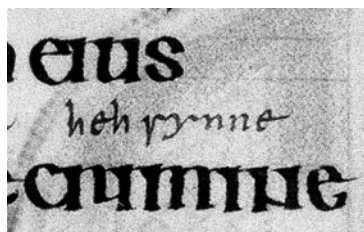 eius
heh synne
crimine